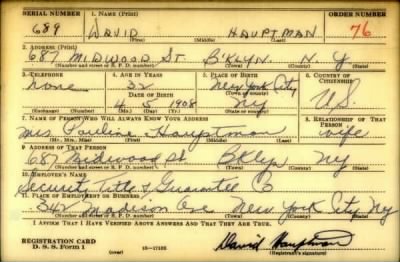 SERIAL NUMBER 1. NAME (Print) ORDER NUMBER
689 DAVID HAUPTMAN 76
(First) (Middle) (Last)
2. ADDRESS (Print)
687 MIDWOOD ST. B'KLYN. N.Y
(Number and street or R. F. D. number) (Town) (County) (State)
3. TELEPHONE 4. AGE IN YEARS 5. PLACE OF BIRTH 6. COUNTRY OF CITIZENSHIP
none 32 New York City
DATE OF BIRTH (Town or county)
4 5 1908 NY U.S.
(Exchange) (Number) (Mo.) (Day) (Yr.) (State or country)
7. NAME OF PERSON WHO WILL ALWAYS KNOW YOUR ADDRESS 8. RELATIONSHIP OF THAT PERSON
Mrs. Pauline Hauptman wife
(Mr., Mrs., Miss) (First) (Middle) (Last)
9. ADDRESS OF THAT PERSON
687 Midwood St BKlyn NY
(Number and street or R. F. D. number) (Town) (County) (State)
10. EMPLOYER'S NAME
Security Title & Guarantee Co
11. PLACE OF EMPLOYMENT OR BUSINESS
342 Madison Ave New York City NY
(Number and street or R. F. D. number) (Town) (County) (State)
I AFFIRM THAT I HAVE VERIFIED ABOVE ANSWERS AND THAT THEY ARE TRUE.
REGISTRATION CARD
D. S. S. Form 1 16—17105 David Hauptman
(Registrant's signature)